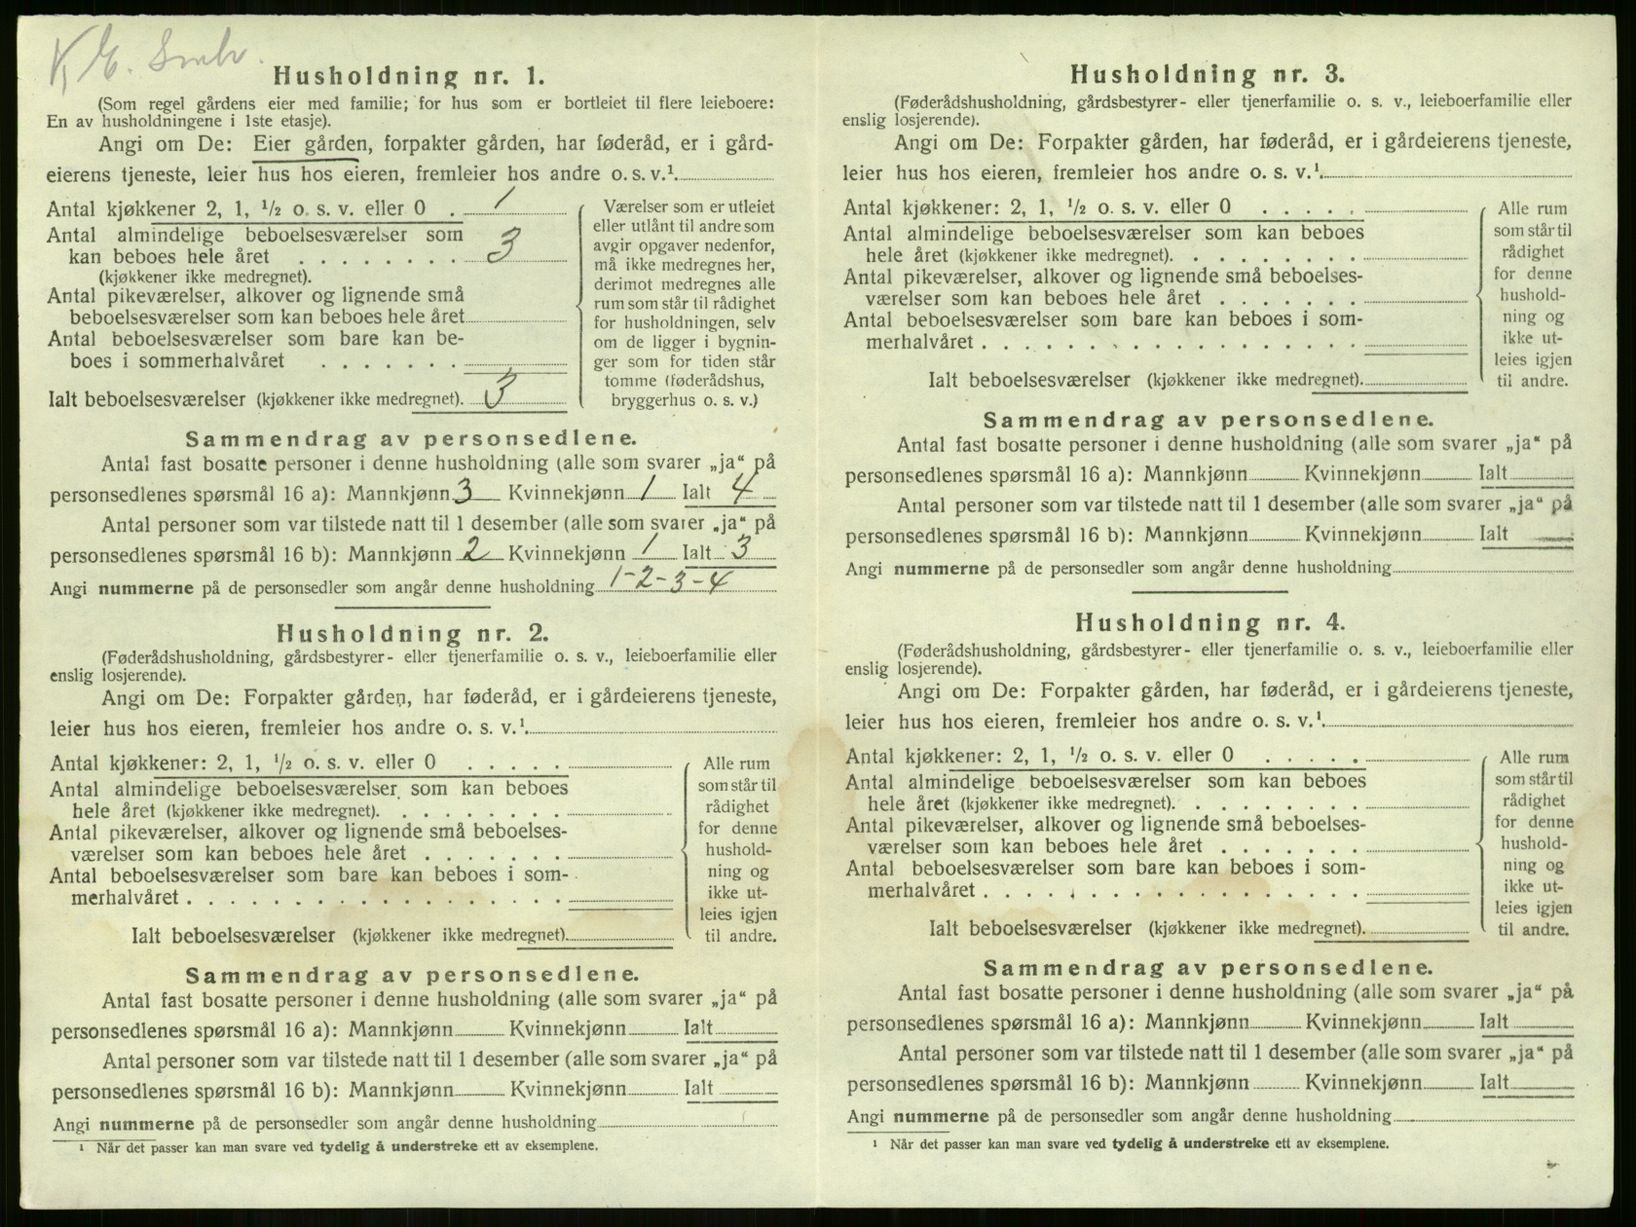 Husholdning nr. 1.
(Som regel gårdens eier med familie; for hus som er bortleiet til flere leieboere:
En av husholdningene i 1ste etasje).
Angi om De: Eier gården, forpakter gården, har føderåd, er i gård-
eierens tjeneste, leier hus hos eieren, fremleier hos andre o. s. v.¹.
Antal kjøkkener 2, 1, ½ o. s. v. eller 0 . 1
Antal almindelige beboelsesværelser som
kan beboes hele året . . . . . . . . 3
(kjøkkener ikke medregnet).
Antal pikeværelser, alkover og lignende små
beboelsesværelser som kan beboes hele året
Antal beboelsesværelser som bare kan be-
boes i sommerhalvåret . . . . . . .
Ialt beboelsesværelser (kjøkkener ikke medregnet). 3
Værelser som er utleiet
eller utlånt til andre som
avgir opgaver nedenfor,
må ikke medregnes her,
derimot medregnes alle
rum som står til rådighet
for husholdningen, selv
om de ligger i bygnin-
ger som for tiden står
tomme (føderådshus,
bryggerhus o. s. v.)
Sammendrag av personsedlene.
Antal fast bosatte personer i denne husholdning (alle som svarer „ja“ på
personsedlenes spørsmål 16 a): Mannkjønn 3 Kvinnekjønn 1 Ialt 4
Antal personer som var tilstede natt til 1 desember (alle som svarer „ja“ på
personsedlenes spørsmål 16 b): Mannkjønn 2 Kvinnekjønn 1 Ialt 3
Angi nummerne på de personsedler som angår denne husholdning 1-2-3-4
Husholdning nr. 2.
(Føderådshusholdning, gårdsbestyrer- eller tjenerfamilie o. s. v., leieboerfamilie eller
enslig losjerende).
Angi om De: Forpakter gården, har føderåd, er i gårdeierens tjeneste,
leier hus hos eieren, fremleier hos andre o. s. v.¹.
Antal kjøkkener: 2, 1, ½ o. s. v. eller 0 . . . . .
Antal almindelige beboelsesværelser som kan beboes
hele året (kjøkkener ikke medregnet). . . . . . . . .
Antal pikeværelser, alkover og lignende små beboelses-
værelser som kan beboes hele året . . . . . . .
Antal beboelsesværelser som bare kan beboes i som-
merhalvåret . . . . . . . . . . . . . . . . . .
Ialt beboelsesværelser (kjøkkener ikke medregnet).
Alle rum
som står til
rådighet
for denne
hushold-
ning og
ikke ut-
leies igjen
til andre.
Sammendrag av personsedlene.
Antal fast bosatte personer i denne husholdning (alle som svarer „ja“ på
personsedlenes spørsmål 16 a): Mannkjønn Kvinnekjønn Ialt
Antal personer som var tilstede natt til 1 desember (alle som svarer „ja“ på
personsedlenes spørsmål 16 b): Mannkjønn Kvinnekjønn Ialt
Angi nummerne på de personsedler som angår denne husholdning
¹ Når det passer kan man svare ved tydelig å understreke ett av eksemplene.
Husholdning nr. 3.
(Føderådshusholdning, gårdsbestyrer- eller tjenerfamilie o. s. v., leieboerfamilie eller
enslig losjerende).
Angi om De: Forpakter gården, har føderåd, er i gårdeierens tjeneste,
leier hus hos eieren, fremleier hos andre o. s. v.¹.
Antal kjøkkener: 2, 1, ½ o. s. v. eller 0 . . . . .
Antal almindelige beboelsesværelser som kan beboes
hele året (kjøkkener ikke medregnet). . . . . . . . .
Antal pikeværelser, alkover og lignende små beboelses-
værelser som kan beboes hele året . . . . . . .
Antal beboelsesværelser som bare kan beboes i som-
merhalvåret . . . . . . . . . . . . . . . . . .
Ialt beboelsesværelser (kjøkkener ikke medregnet).
Alle rum
som står til
rådighet
for denne
hushold-
ning og
ikke ut-
leies igjen
til andre.
Sammendrag av personsedlene.
Antal fast bosatte personer i denne husholdning (alle som svarer „ja“ på
personsedlenes spørsmål 16 a): Mannkjønn Kvinnekjønn Ialt
Antal personer som var tilstede natt til 1 desember (alle som svarer „ja“ på
personsedlenes spørsmål 16 b): Mannkjønn Kvinnekjønn Ialt
Angi nummerne på de personsedler som angår denne husholdning
Husholdning nr. 4.
(Føderådshusholdning, gårdsbestyrer- eller tjenerfamilie o. s. v., leieboerfamilie eller
enslig losjerende).
Angi om De: Forpakter gården, har føderåd, er i gårdeierens tjeneste,
leier hus hos eieren, fremleier hos andre o. s. v.¹.
Antal kjøkkener: 2, 1, ½ o. s. v. eller 0 . . . . .
Antal almindelige beboelsesværelser som kan beboes
hele året (kjøkkener ikke medregnet). . . . . . . . .
Antal pikeværelser, alkover og lignende små beboelses-
værelser som kan beboes hele året . . . . . . .
Antal beboelsesværelser som bare kan beboes i som-
merhalvåret . . . . . . . . . . . . . . . . . .
Ialt beboelsesværelser (kjøkkener ikke medregnet).
Alle rum
som står til
rådighet
for denne
hushold-
ning og
ikke ut-
leies igjen
til andre.
Sammendrag av personsedlene.
Antal fast bosatte personer i denne husholdning (alle som svarer „ja“ på
personsedlenes spørsmål 16 a): Mannkjønn Kvinnekjønn Ialt
Antal personer som var tilstede natt til 1 desember (alle som svarer „ja“ på
personsedlenes spørsmål 16 b): Mannkjønn Kvinnekjønn Ialt
Angi nummerne på de personsedler som angår denne husholdning
¹ Når det passer kan man svare ved tydelig å understreke ett av eksemplene.